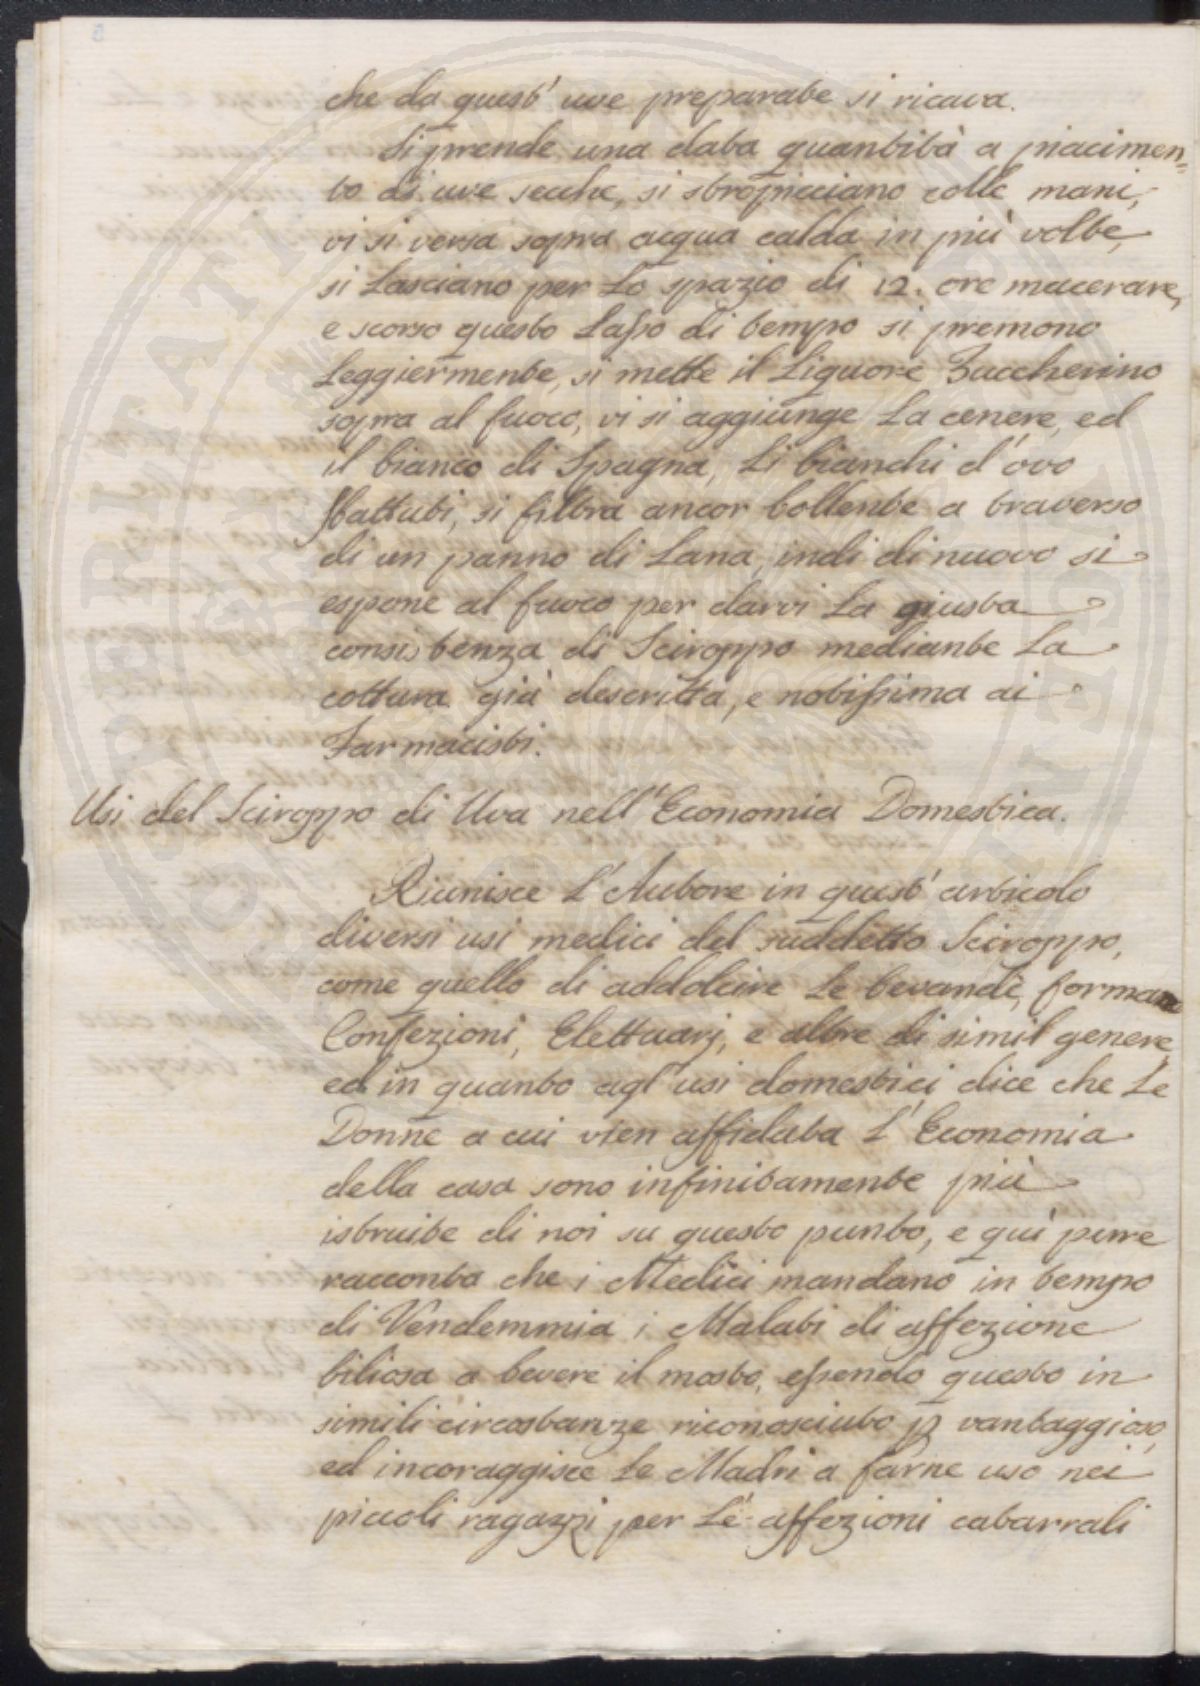 che da quest' uve preparate si ricava.
Si prende una data quantità a piacimen=
to di uve secche, si stropicciano colle mani,
vi si versa sopra acqua calda in più volte,
si Lasciano per Lo spazio di 12. ore macerare,
e scorso questo Lasso di tempo si premono
Leggiermente, si mette il Liquore Zuccherino
sopra al fuoco, vi si aggiunge La cenere, ed
il bianco di Spagna, Li bianchi d'ovo
sbattuti, si filtra ancor bollente a traverso
di un panno di Lana, indi di nuovo si
espone al fuoco per darvi La giusta
consistenza di Sciroppo mediante La
cottura già descritta, e notissima ai
Farmacisti.
Usi del Sciroppo di Uva nell'Economia Domestica.
Riunisce L'Autore in quest' articolo
diversi usi medici del suddetto Sciroppo,
come quello di addolcire Le bevande, formare
Confezioni, Elettuarj, e altre di simil genere,
ed in quanto agl'usi domestici dice che Le
Donne a cui vien affidata L'Economia
della casa sono infinitamente più
istruite di noi su questo punto, e quì pure
racconta che i Medici mandano in tempo
di Vendemmia i Malati di affezione
biliosa a bevere il mosto, essendo questo in
simili circostanze riconosciuto p vantaggioso,
ed incoraggisce Le Madri a farne uso nei
piccoli ragazzi per Le affezioni catarrali
PERITATI